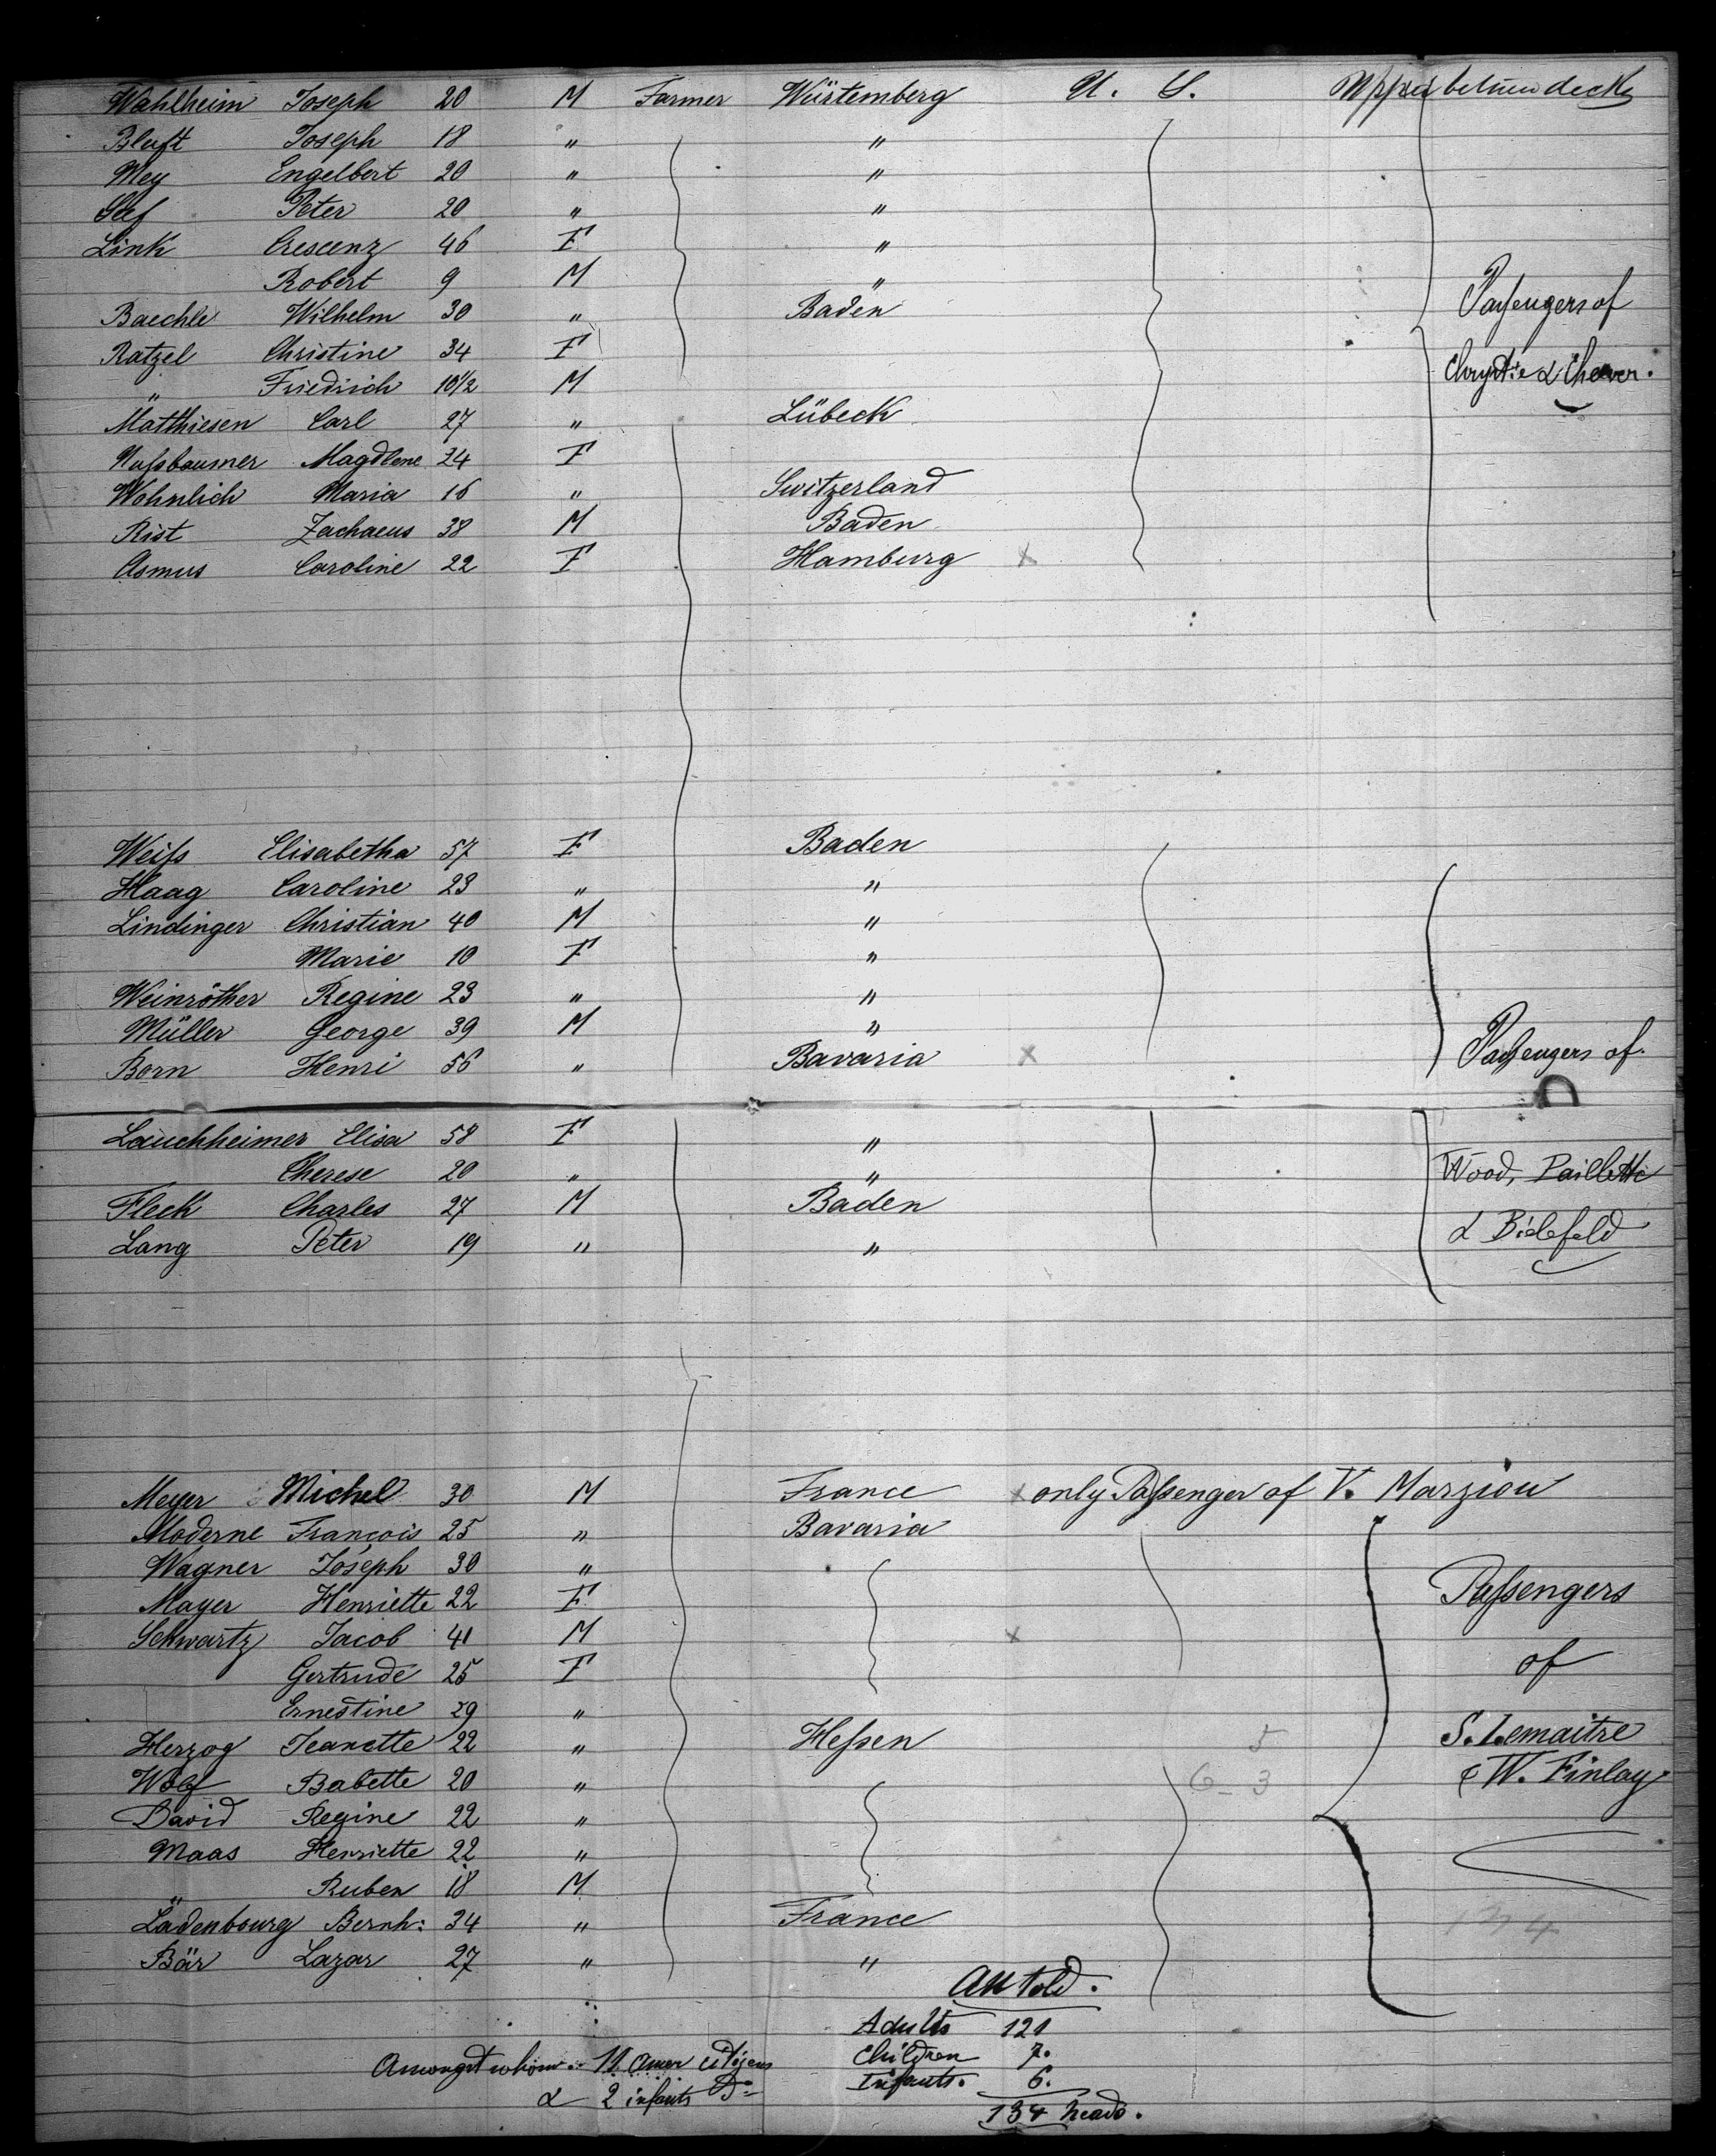 Wahlheim Joseph 20 M Farmer Würtemberg U. S. Upper between decks
Bluft Joseph 18 " "
Mey Engelbert 20 " "
Peter 20 " "
Link Crescenz 46 F "
Robert 9 M "
Baechle Wilhelm 30 " Baden
Ratzel Christine 34 F
" Friedrich 10 1/2 M
Matthiesen Carl 27 " Lübeck
Nußbaumer Magdlene 24 F
Wohnlich Maria 16 " Switzerland
Rist Zachaeus 38 M Baden
Asmus Caroline 22 F Hamburg x
Passengers of
Chrystie & Cheever.
Weiſs Elisabetha 57 F Baden
Haag Caroline 23 " "
Lindinger Christian 40 M "
Marie 10 F "
Weinröther Regine 23 " "
Müller George 39 M "
Born Henri 56 " Bavaria x
Lauchheimer Elisa 58 F "
Therese 20 " "
Fleck Charles 27 M Baden
Lang Peter 19 " "
Passengers of
Wood, Paillette
& Bielefeld
Meyer Michel 30 M France x only Passenger of V. Marziou
Moderne François 25 " Bavaria
Wagner Joseph 30 "
Mayer Henriette 22 F
Schwartz Jacob 41 M x
Gertrude 25 F
Ernestine 29 "
Herzog Jeanette 22 " Heſsen 5
Wolf Babette 20 " 6 - 3
David Regine 22 "
Maas Henriette 22 "
" Ruben 18 M
Ladenbourg Bernh: 34 " France
Bär Lazar 27 " "
Passengers
of
S. Lemaitre
& W. Finlay
134
All told.
Adults 121
Children 7.
Infants. 6.
134 heads.
Amongst whom 11 Amer citizens
& 2 infants do